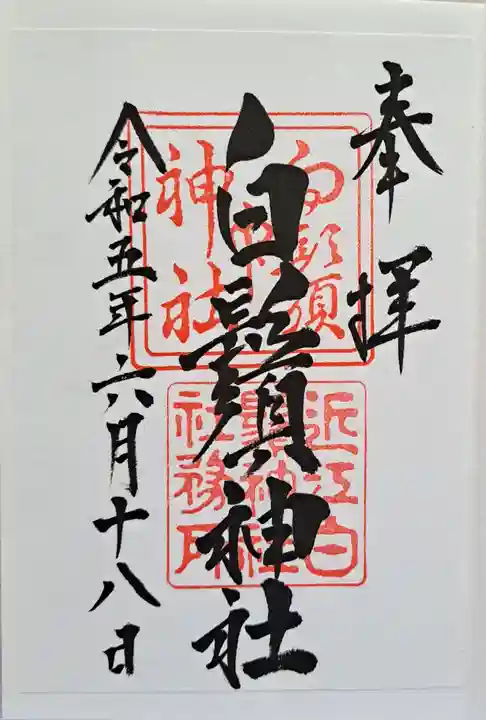 奉拝
白鬚神社
令和五年六月十八日
白鬚
神社
近江白
鬚神社
社務所